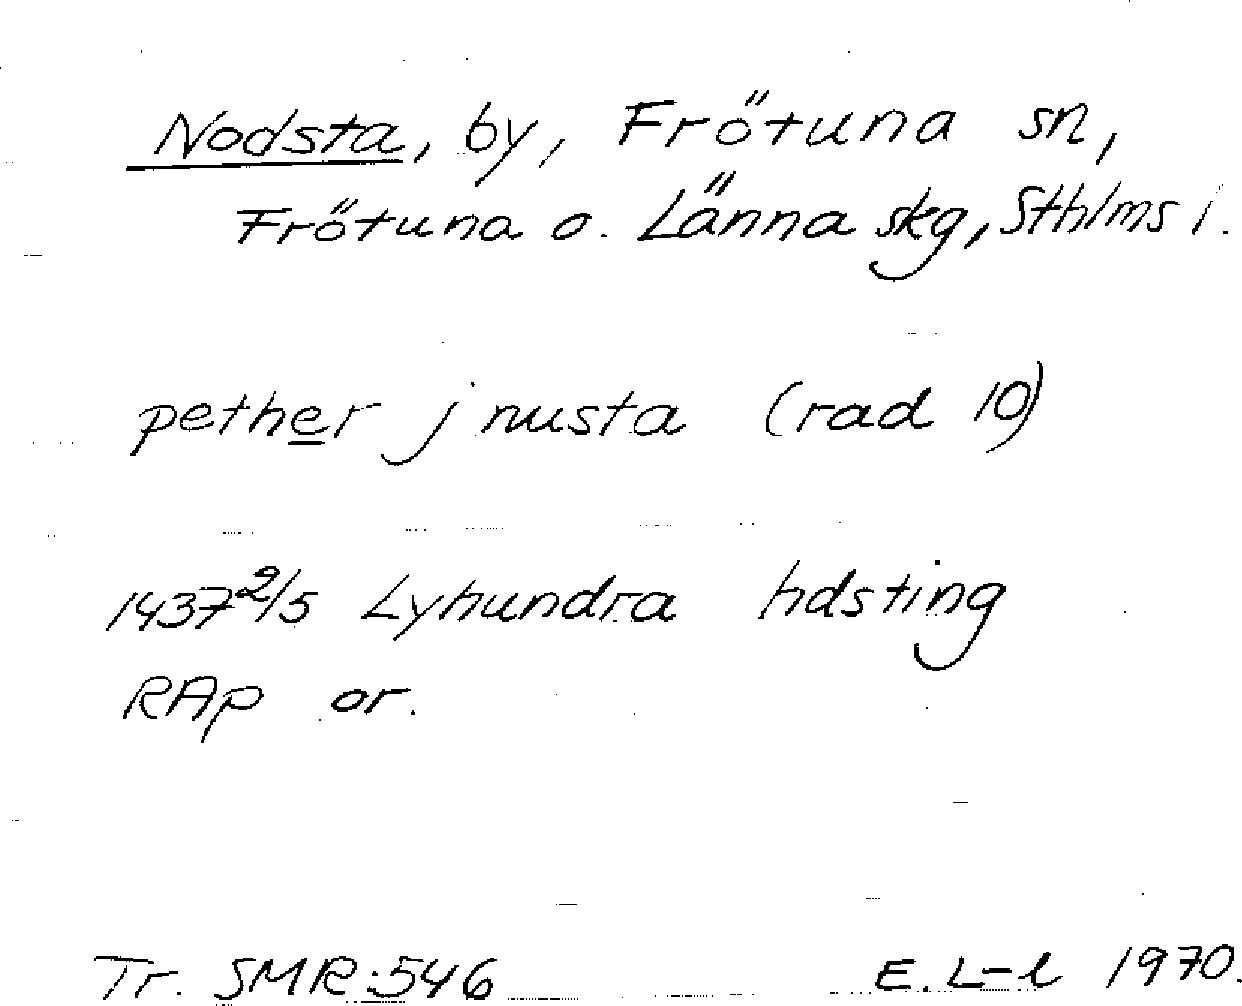 Nodsta, by, Frötuna sn,
Frötuna o. Länna skg, Sthlms l.
pether j nusta (rad 10)
1437 2/5 Lyhundra hdsting
RAp or.
Tr. SMR:546 E. L-l 1970.